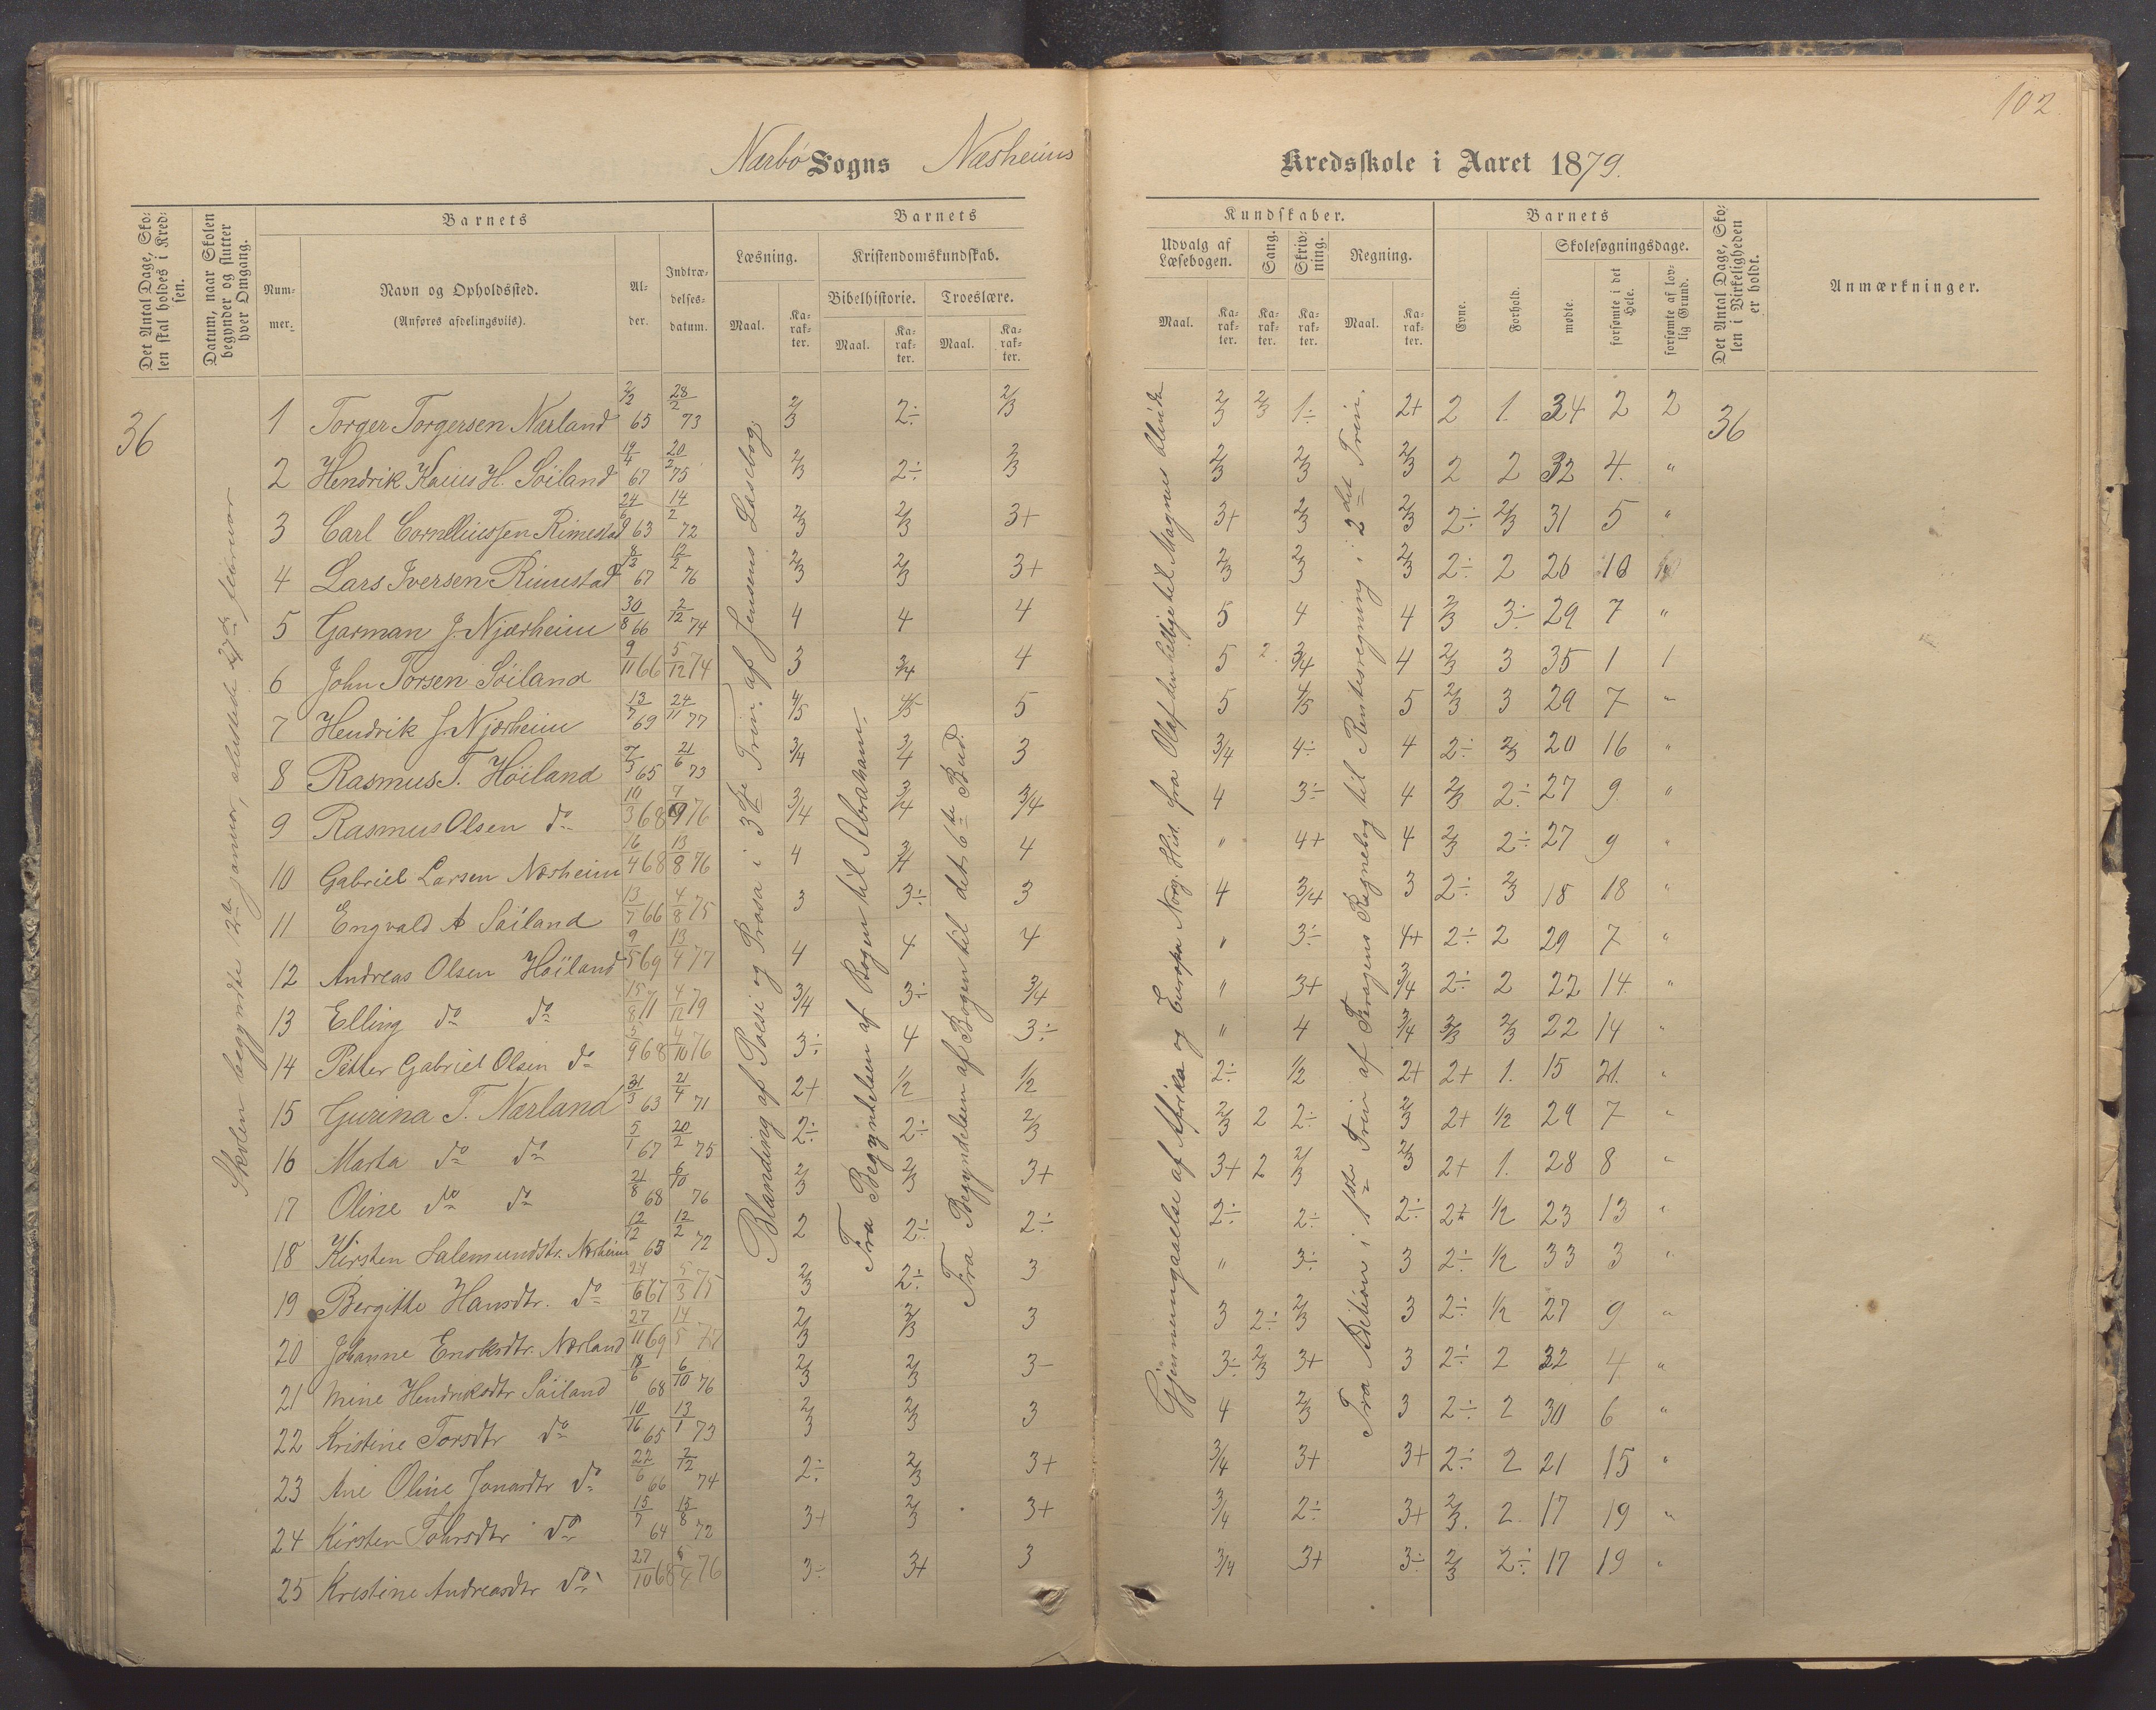 102
Nærbö Sogns Næsheims Kredsskole i Aaret 1879.
Det Antal Dage, Skolen skal holdes i Kredsen.
Datum, naar Skolen begynder og slutter hver Omgang.
Barnets
Nummer.
Navn og Opholdssted.
(Anføres afdelingsviis).
Alder.
Indtrædelsesdatum.
Barnets
Læsning.
Maal.
Karakter.
Kristendomskundskab.
Bibelhistorie.
Maal.
Karakter.
Troeslære.
Maal.
Karakter.
Kundskaber.
Udvalg af Læsebogen.
Maal.
Karakter.
Sang.
Karakter.
Skrivning.
Karakter.
Regning.
Maal.
Karakter.
Barnets
Evne.
Forhold.
Skolesøgningsdage.
mødte
forsømte i det Hele.
forsømte af lovlig Grund.
Det Antal Dage, Skolen i Virkeligheden er holdt.
Anmærkninger.
36
Skolen begyndte 12te januar, sluttede 27de februar
Blanding af Poesi og Prosa i 3die Trin. af Jensens Læsebog.
Fra Begyndelsen af Bogen til Abraham.
Fra Begyndelsen af Bogen til det 6te Bud.
Gjennemgaaelse af Afrika og Europa Norg. Hist. fra Olaf den hellige til Magnus blinde
Fra Adition i 1ste Trin af Fragens Regnebog til Rentesregning i 2det Trin.
36
1 Torger Torgersen Nærland 2/3 65 28/2 73 2/3 2÷ 2/3 2/3 2/3 1÷ 2+ 2 1. 34 2 2
2 Hendrik Kaius H. Söiland 19/4 67 20/2 75 2/3 2÷ 2/3 2/3 2/3 2/3 2 2 32 4. "
3 Carl Corneliussen Rimestad 24/6 63 14/2 72 2/3 2/3 3+ 3+ 2/3 2/3 2÷ 2/3 31 5 "
4 Lars Iversen Rimestad 8/12 67 12/2 76 2/3 2/3 3+ 2/3 2/3 2/3 2÷ 2 26 10
5 Garman J. Njærheim 30/8 66 2/12 74 4 4 4 5 4 4 2/3 3÷ 29 7 "
6 John Torsen Söiland 9/11 66 5/12 74 3 3/4 4 5 2. 3/4 4 2/3 3 35 1 1
7 Hendrik J. Njærheim 13/7 69 24/11 77 4/5 4/5 5 5 4/5 5 2/3 3 29 7 "
8 Rasmus T. Höiland 7/3 65 21/6 73 3/4 3/4 3 3/4 4÷ 4 2÷ 2/3 20 16 "
9 Rasmus Olsen do 10/3 68 7/9 76 3/4 3/4 3/4 4 3÷ 4 2/3 2÷ 27 9 "
10 Gabriel Larsen Næsheim 16/4 68 13/8 76 4 3/4 4 " 4+ 4 2/3 2÷ 27 9 "
11 Engvald A Söiland 13/7 66 4/8 75 3 3÷ 3 4 3/4 3 2÷ 2/3 18 18 "
12 Andreas Olsen Höiland 9/5 69 13/4 77 4 4 4 " 3÷ 4+ 2÷ 2 29 7 "
13 Elling do do 15/8 71 4/12 79 3/4 3÷ 3/4 " 3+ 3/4 2÷ 2 22 14. "
14 Petter Gabriel Olsen do 5/9 68 4/10 76 3÷ 4 3÷ " 4 3/4 2/3 2/3 22 14 "
15 Gurina T. Nærland 31/3 63 21/4 71 2+ 1/2 1/2 2÷ 1/2 2+ 2+ 1. 15 21. "
16 Marta do do 5/1 67 20/2 75 2÷ 2÷ 2/3 2/3 2 2÷ 2/3 2+ 1/2 29 7 "
17 Oline do do 21/8 68 6/10 76 2/3 2/3 3+ 3+ 2 2/3 2/3 2+ 1. 28 8 "
18 Kirsten Salemundstr. Næsheim 12/12 65 12/2 72 2 2÷ 2÷ 2÷ 2÷ 2÷ 2+ 1/2 23 13 "
19 Bergitte Hansdtr. do 24/6 67 5/3 75 2/3 2÷ 3 " 3÷ 3 2÷ 1/2 33 3 "
20 Johanne Enoksdtr. Nærland 27/11 69 14/5 77 2/3 2/3 3 3 2÷ 2/3 3 2÷ 1/2 27 9 "
21 Mine Hendriksdtr Söiland 18/6 68 6/10 76 2/3 2/3 3- 3÷ 2/3 3+ 3 2÷ 2 32 4 "
22 Kristine Torsdtr do 10/16 65 13/1 73 2/3 2/3 3 4 2/3 3 2÷ 2 30 6 "
23 Ane Oline Jonasdtr do 22/6 66 2/12 74 2÷ 2/3 3+ 3/4 3+ 3+ 2÷ 2 21 15 "
24 Kirsten Tohrsdtr do 15/7 64 15/8 72 3+ 2/3 3+ 3/4 2÷ 3+ 2/3. 2. 17 19 "
25 Kristine Andreasdtr do 27/10 68 6/4 76 3÷ 3+ 3 3/4 3+ 3÷ 2/3 2÷ 17 19 "